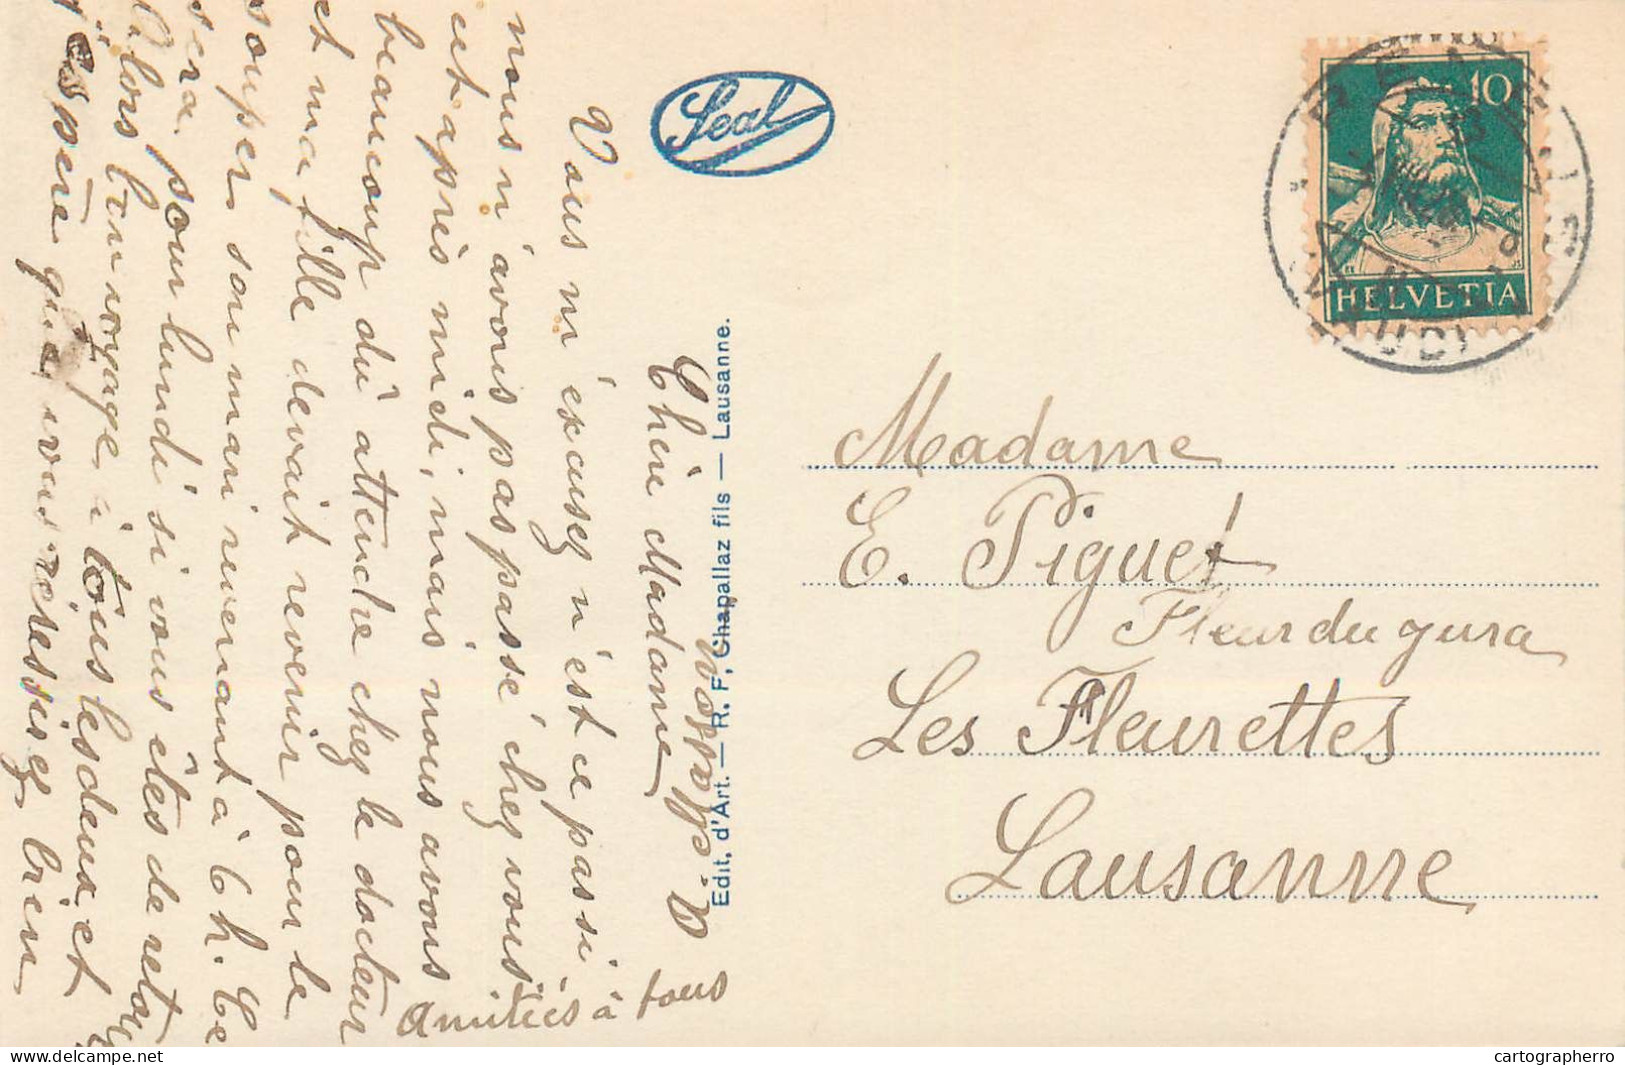 Chère Madame
Vous m'éxcusez n'est ce pas si
nous n'avons pas passé chez vous
cet après midi, mais nous avons
beaucoup dû attendre chez le docteur
et ma fille devait revenir pour le
souper son mari revenant à 6 h. Ce
sera pour lundi si vous êtes de retour
Alors bon voyage à tous les deux et
espère que vous réussirez bien
Amitiées à tous
Seal
Edit. d'Art. — R. F. Chapallaz fils — Lausanne.
10
HELVETIA
Madame
E. Piguet
Fleur du jura
Les Fleurettes
Lausanne
cartographerro